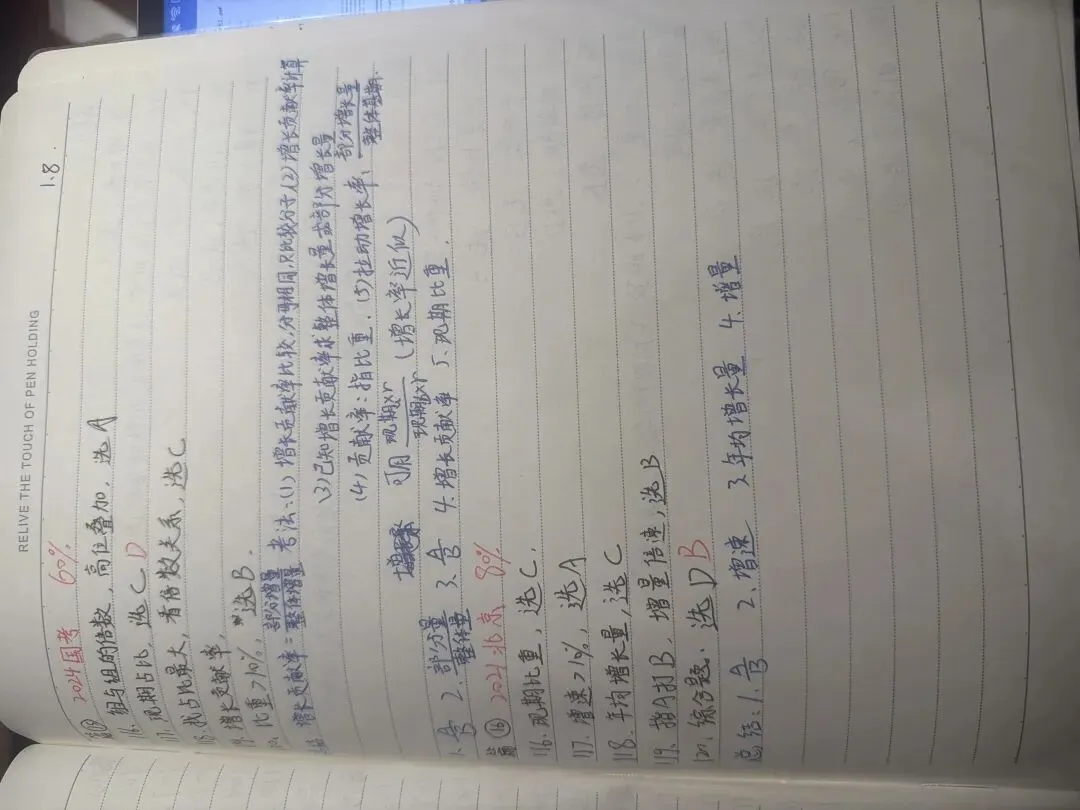 RELIVE THE TOUCH OF PEN HOLDING
1.8.
2024国考 60%
116. 组与组的倍数，高位叠加，选A
117. 现期占比，选C D
118. 找占比最大，看倍数关系，选C
119. 增长贡献率，
120. 比重>10%，选B.
增长贡献率=部分增量/整体增量 考法:(1)增长贡献率比较,分母相同,只比较分子,(2)增长贡献率计算
(3)已知增长贡献率求整体增长量或部分增长量
(4)贡献率:指比重. (5)拉动增长率、部分增长量/整体基期
可用 现期×r/现期×r (增长率近似)
1.A/B 2.部分量/整体量 3.A/B 4.增长贡献率 5.现期比重.
⑯ 2021北京 80%
116.现期比重,选C.
117.增速>1%,选A
118.年均增长量,选C
119.指A打B,增量倍速,选B
120.综合题.选D B
总结:1.A/B 2.增速 3.年均增长量 4.增量